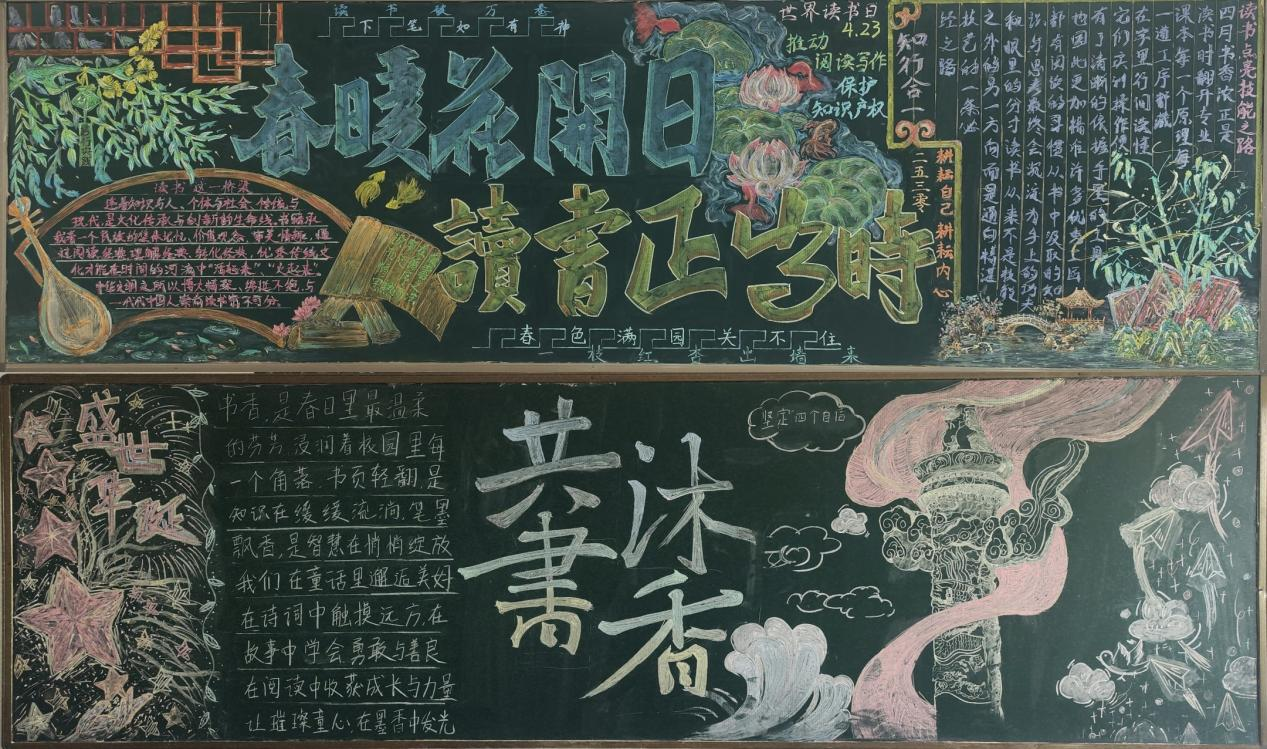 读书破万卷
下笔如有神
世界读书日
4.23
推动
阅读写作
保护
知识产权
春暖花開日
讀書正当時
读书这一桥梁
连着知识与人、个体与社会、传统与
现代,是文化传承与创新的生命线。书籍承
载着一个民族的集体记忆、价值观念、审美情趣,通
过阅读经典、理解经典、转化经典,优秀传统文
化才能在时间的河流中“活起来”“火起来”。
中华文明之所以博大精深、绵延不绝,与
代代中国人崇尚读书密不可分。
春色满园关不住
一枝红杏出墙来
知行合一
耕耘自己耕耘内心
二五三零
读书点亮技能之路
四月书香浓,正是
读书时翻开专业
课本每一个原理,每
一道工序都藏
在字里行间读懂
它们实训操作便
有了清晰的依据手里的工具
也因此更加精准许多优秀工匠
都有阅读的习惯从书中汲取的知
识与思考最终会沉淀为手上的巧夫
和眼里的分寸读书从来不是技能
之外的另一方向而是通向精湛
技艺的一条必
经之路
盛世华诞
书香,是春日里最温柔
的芬芳,浸润着校园里每
一个角落。书页轻翻,是
知识在缓缓流淌,笔墨
飘香,是智慧在悄悄绽放
我们在童话里邂逅美好
在诗词中触摸远方,在
故事中学会勇敢与善良
在阅读中收获成长与力量
让璀璨童心,在墨香中发光
共沐
書香
坚定“四个自信”